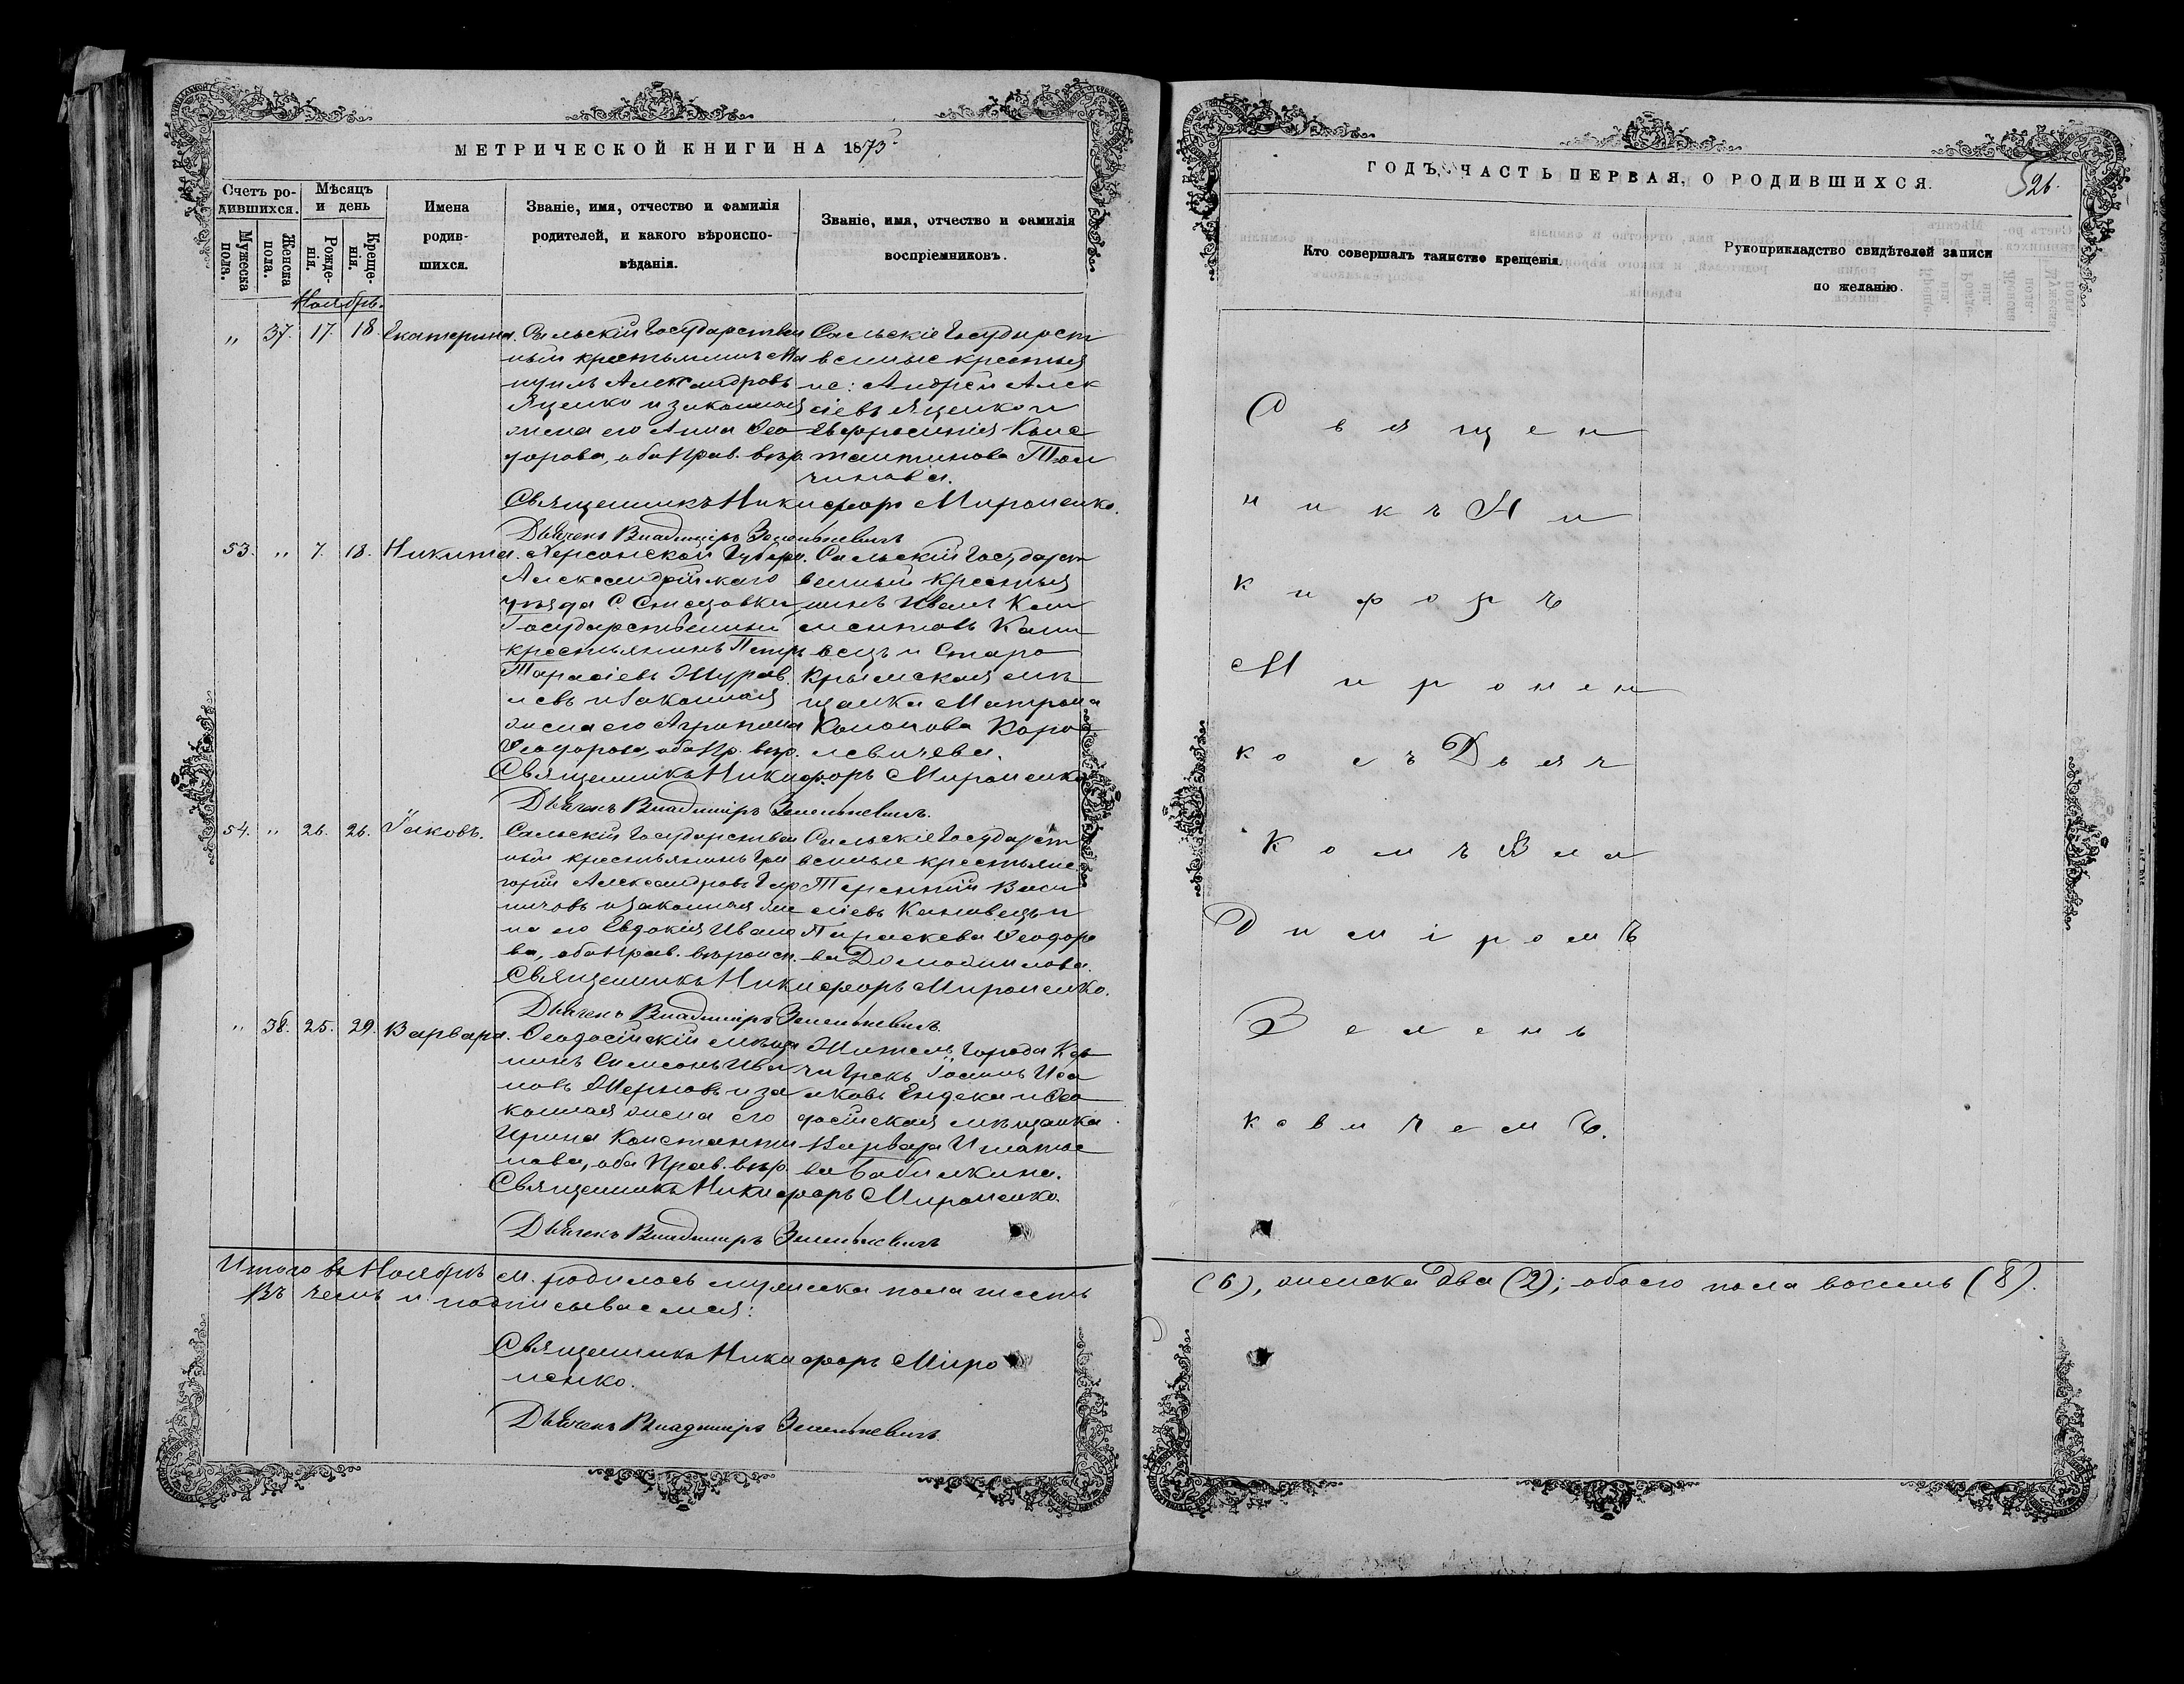 МЕТРИЧЕСКОЙ КНИГИ НА 1875
Счетъ ро-
дившихся.
Мѣсяцъ
и день
Мужеска
пола.
Женска
пола.
Рожде-
нія.
Креще-
нія.
Имена
родив-
шихся.
Званіе, имя, отчество и фамилія
родителей, и какого вѣроиспо-
вѣданія.
Званіе, имя, отчество и фамилія
воспріемниковъ.
Ноябрь.
„ 37. 17. 18. Екатерина.
Сальскій Государствен
ный крестьянинъ Ма
нуилъ Александровъ
Яценко и законная
жена его Анна Ѳео
дорова, оба прав. вѣр.
Сальскіе Государст
венные крестья
не: Андрей Алек
сіевъ Яценко и
Евфросинія Конс
тантинова
Священникъ Никифоръ Мироненко.
Дьячекъ Владиміръ Зеленькевичъ
53. „ 7. 18. Никита.
Херсонской Губерн.
Александрійскаго
уѣзда С.
Государственный
крестьянинъ Петръ
Тарасіевъ Журав
левъ и законная
жена его Агрипина
Ѳеодорова, оба пр. вѣр.
Сальскій Государст
венный крестья
нинъ Иванъ Кли
ментовъ Кани
вецъ и Старо
крымская мѣ
щанка Матрона
Кононова Коро
левичева.
Священникъ Никифоръ Мироненко
Дьячекъ Владиміръ Зеленькевичъ.
54. „ 26. 26. Іаковъ.
Сальскій Государствен
ный крестьянинъ Гри
горій Александровъ
и законная же
на его Евдокія Ивано
ва, оба прав. вѣроисп.
Сальскіе Государст
венные крестьяне
Терентій Васи
ліевъ Канивецъ и
Параскева Ѳеодоро
ва
Священникъ Никифоръ Мироненко.
Дьячекъ Владиміръ Зеленькевичъ.
„ 38. 25. 29. Варвара.
Ѳеодосійскій мѣща
нинъ Симеонъ Ива
новъ и за
конная жена его
Ирина Константи
нова, оба Прав. вѣр.
Житель города Кер
чи Грекъ Іоаннъ Иса
аковъ Ендека и Ѳео
досійская мѣщанка
Варвара Игнатье
ва Бабилкина.
Священникъ Никифоръ Мироненко.
Дьячекъ Владиміръ Зеленькевичъ
Итого въ Ноябрѣ м. родилось мужеска пола шесть
Въ чемъ и подписываемся:
Священникъ Никифоръ Миро
ненко.
Дьячекъ Владиміръ Зеленькевичъ.
ГОДЪ, ЧАСТЬ ПЕРВАЯ, О РОДИВШИХСЯ.
526.
Кто совершалъ таинство крещенія.
Рукоприкладство свидѣтелей записи
по желанію.
Священ
никъ Ни
кифоръ
Миронен
ко съ Дьяч
комъ Вла
диміромъ
Зелень
кевичемъ.
(6), женска два (2); обоего пола восемь (8).